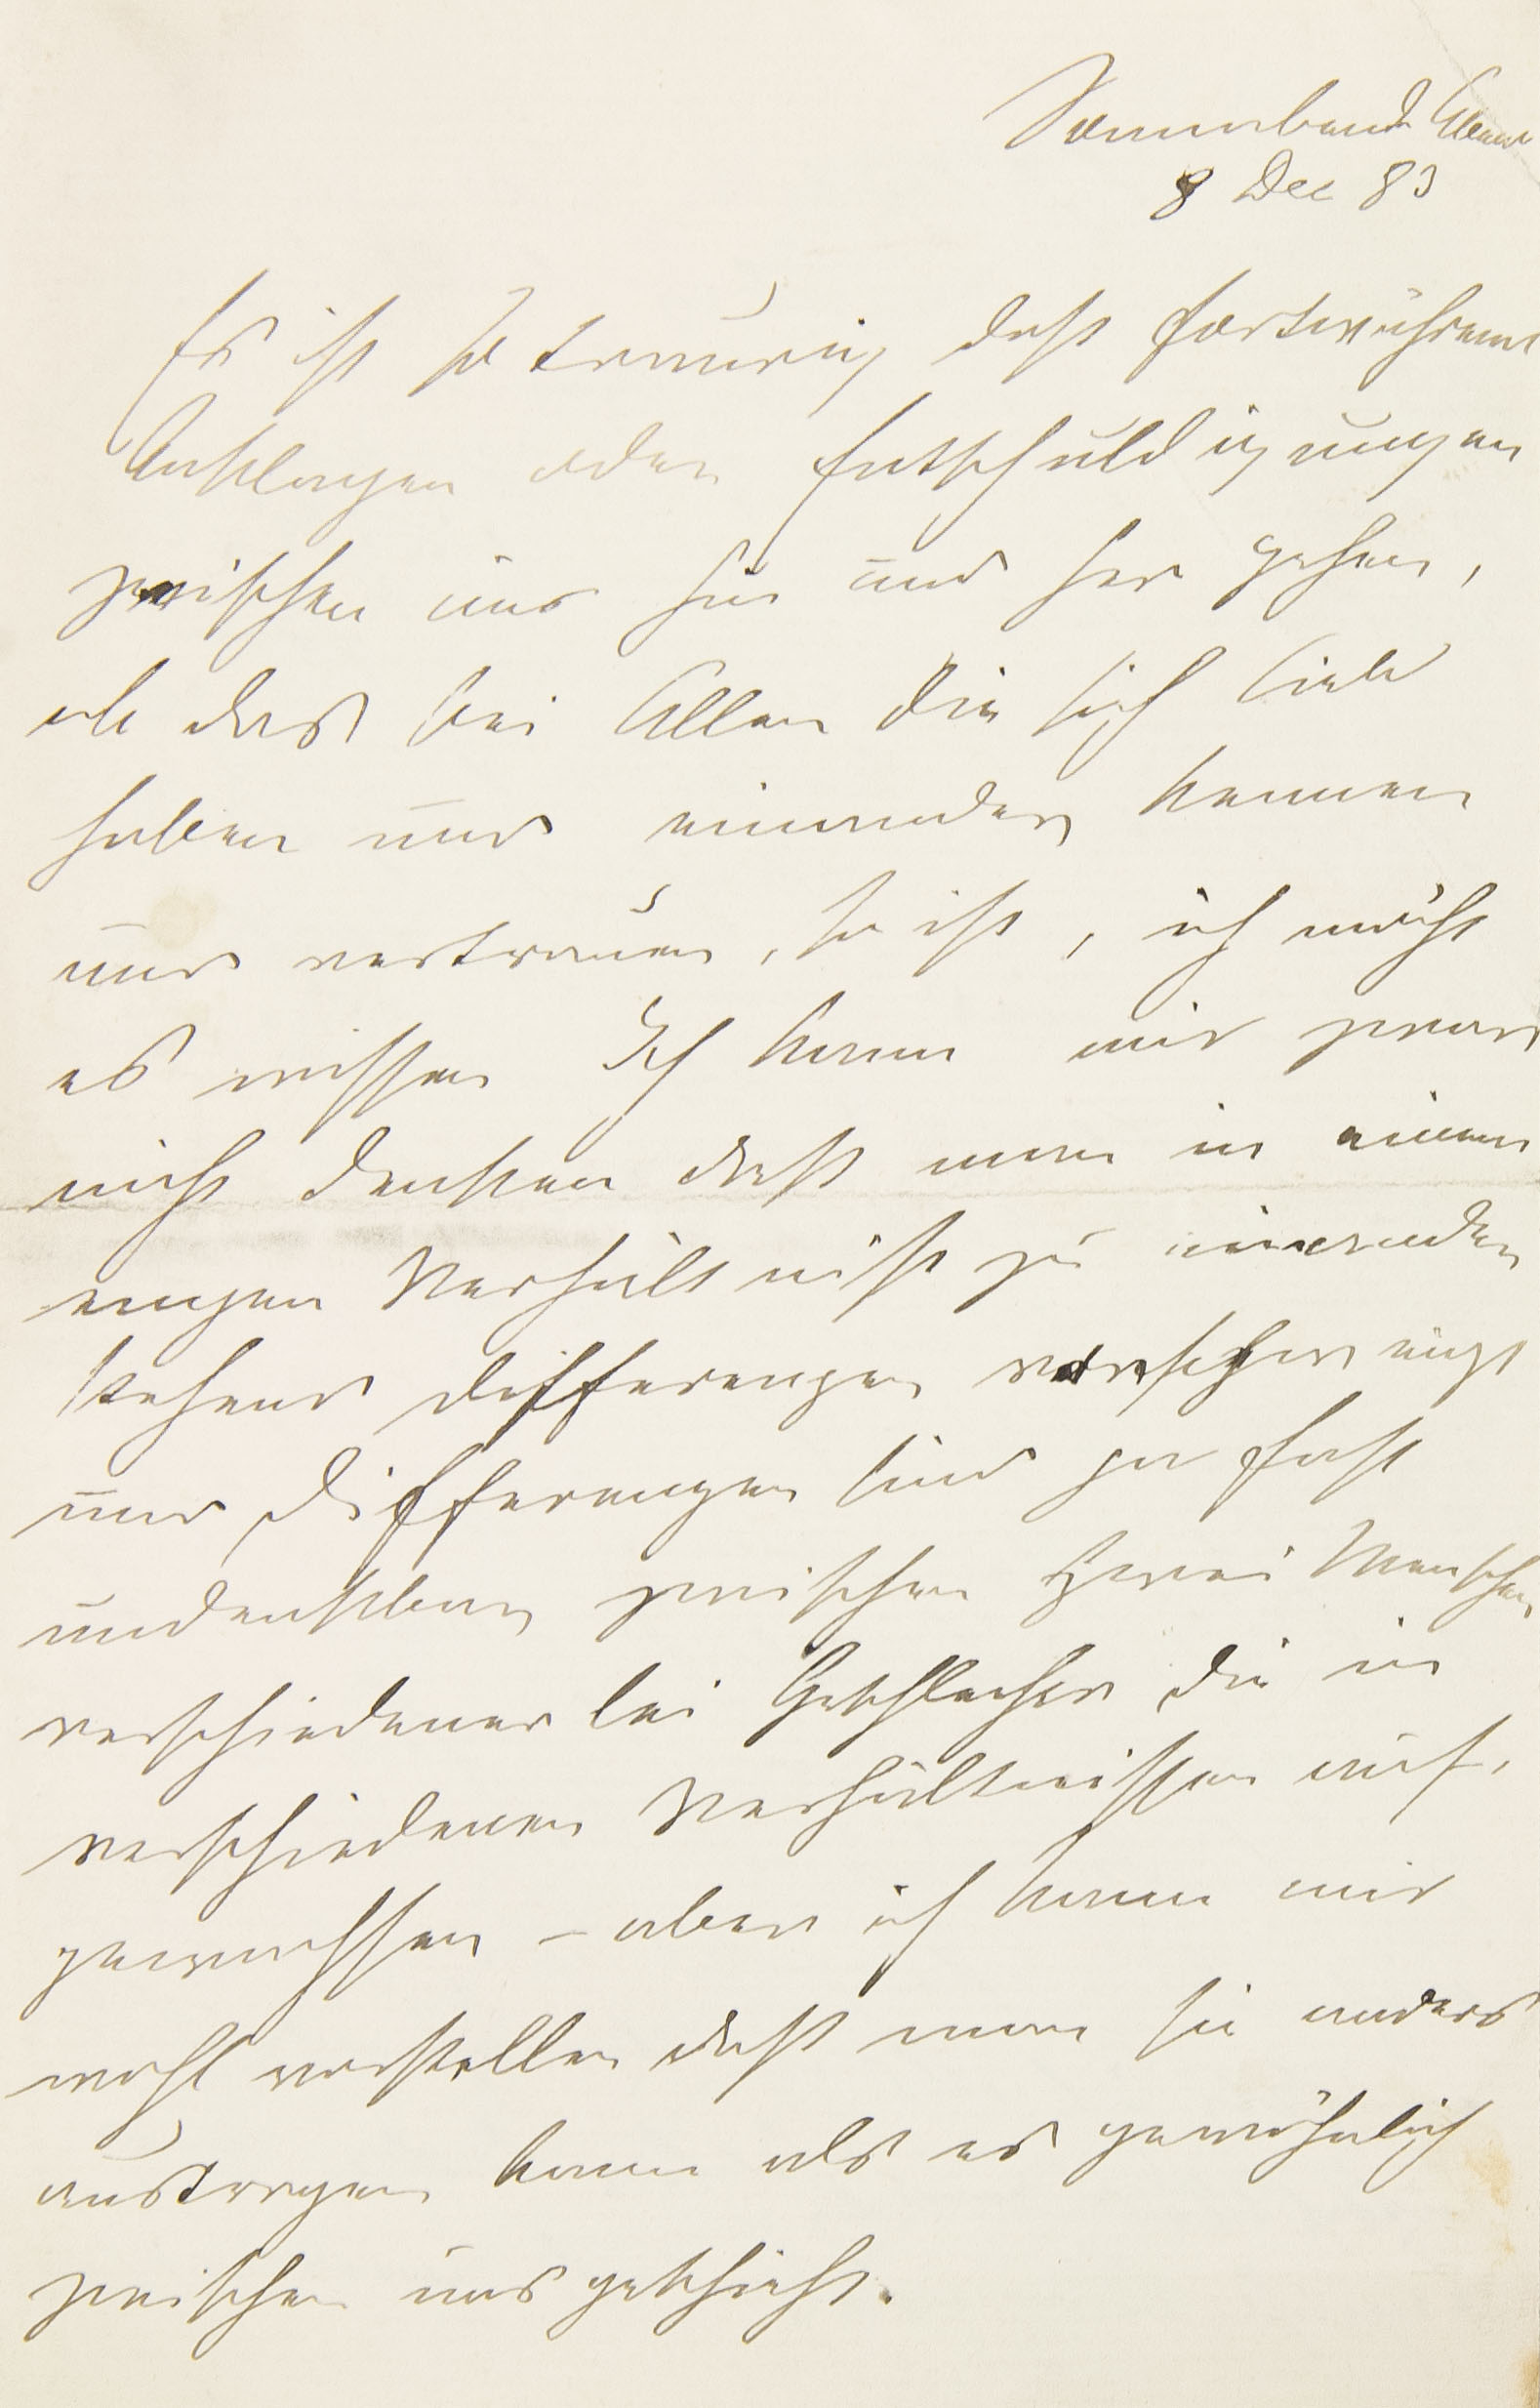 Sonnabend Abend
8 Dec 83
Es ist so traurig daß fortwährend
Anklagen oder Entschuldigungen
zwischen uns hin und her gehen,
ob das bei Allen die sich lieb
haben und einander kennen
und vertrauen, so ist, ich möcht
es wissen Ich kann mir zwar
nicht denken daß man in einem
engen Verhältniß zu einander
stehend Differenzen verschweigt
und Differenzen sind ja fast
undenkbar zwischen zwei Menschen
verschiedener lei Geschlechts die in
verschiedenen Verhältnissen auf,
gewachsen – aber ich kann mir
wohl vorstellen daß man sie anders
austragen kann als es gewöhnlich
zwischen uns geschieht.